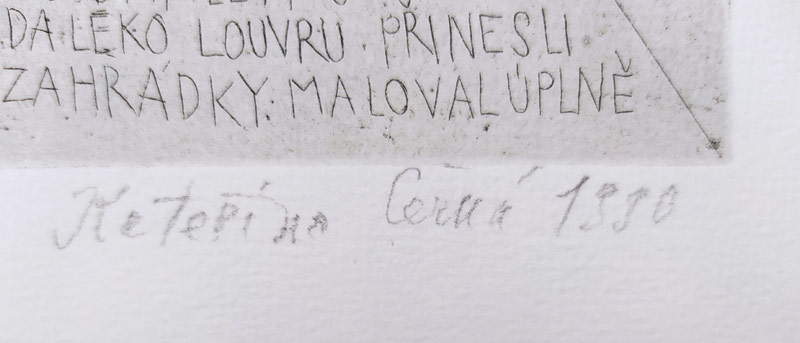 DALEKO LOUVRU PŘINESLI
ZAHRÁDKY. MALOVAL ÚPLNĚ
Kateřina Černá 1990